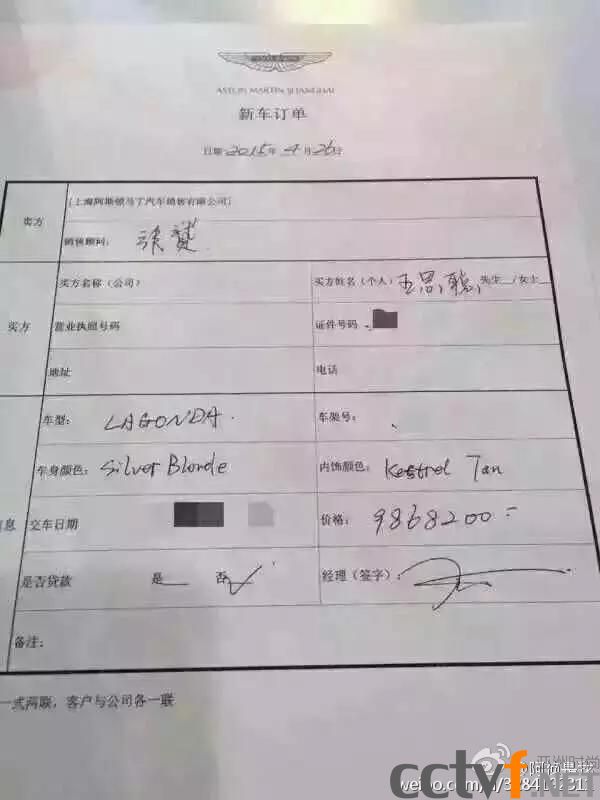 ASTON MARTIN SHANGHAI
新车订单
日期 2015年 4月26日
卖方
[上海阿斯顿马丁汽车销售有限公司]
销售顾问:
买方
买方名称（公司）
买方姓名（个人） 王思聪 先生__/女士__
营业执照号码
证件号码
地址
电话
车型: LAGONDA
车架号:
车身颜色: Silver Blonde
内饰颜色: Kestrel Tan
息
交车日期
价格: 9868200
是否贷款 是__ 否✓
经理（签字）:
备注:
一式两联，客户与公司各一联
cctvf.NET